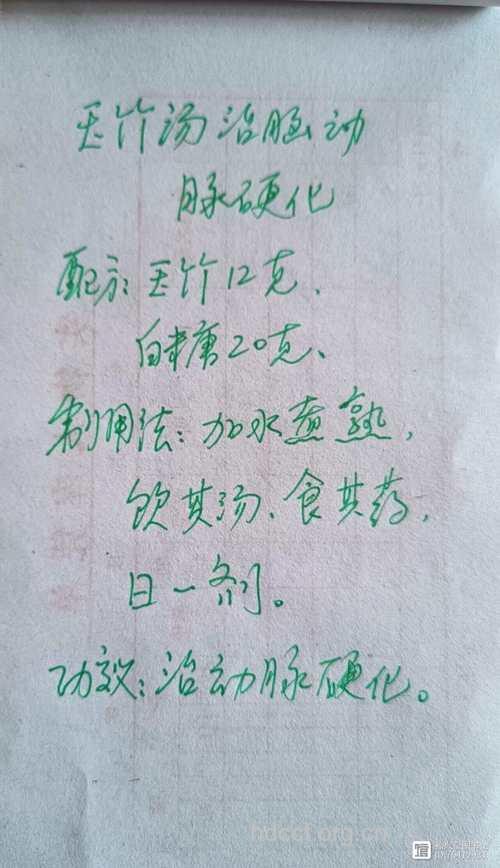 玉竹汤治脑动
脉硬化
配方:玉竹12克、
白糖20克、
制用法:加水煮熟,
饮其汤、食其药,
日一剂。
功效:治动脉硬化。
hdsccf.org.cn